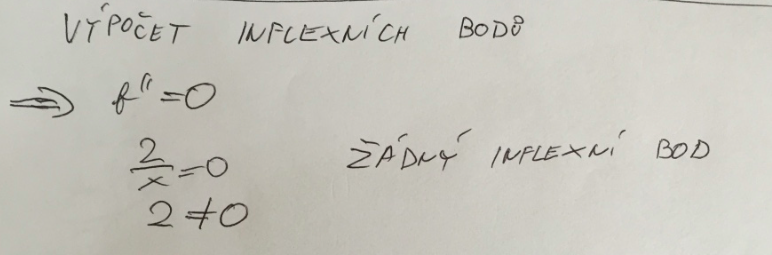 VÝPOČET INFLEXNÍCH BODŮ
⇒ f'' = 0
2/x = 0 ŽÁDNÝ INFLEXNÍ BOD
2 ≠ 0